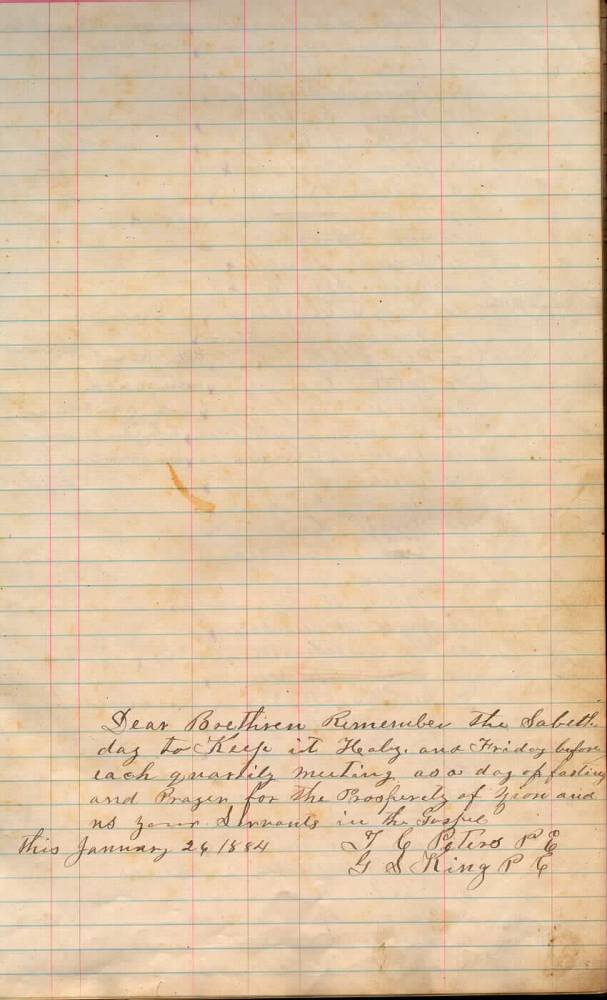 Dear Brethren Remember the Sabeth
day to Keep it Healy. and Friday before
each quartily meeting as a day of fasting
and Prayer for the Prosperety of Zion and
us your Servants in the Gospel
this January 26 1884 T C Peters P E
G S King P E